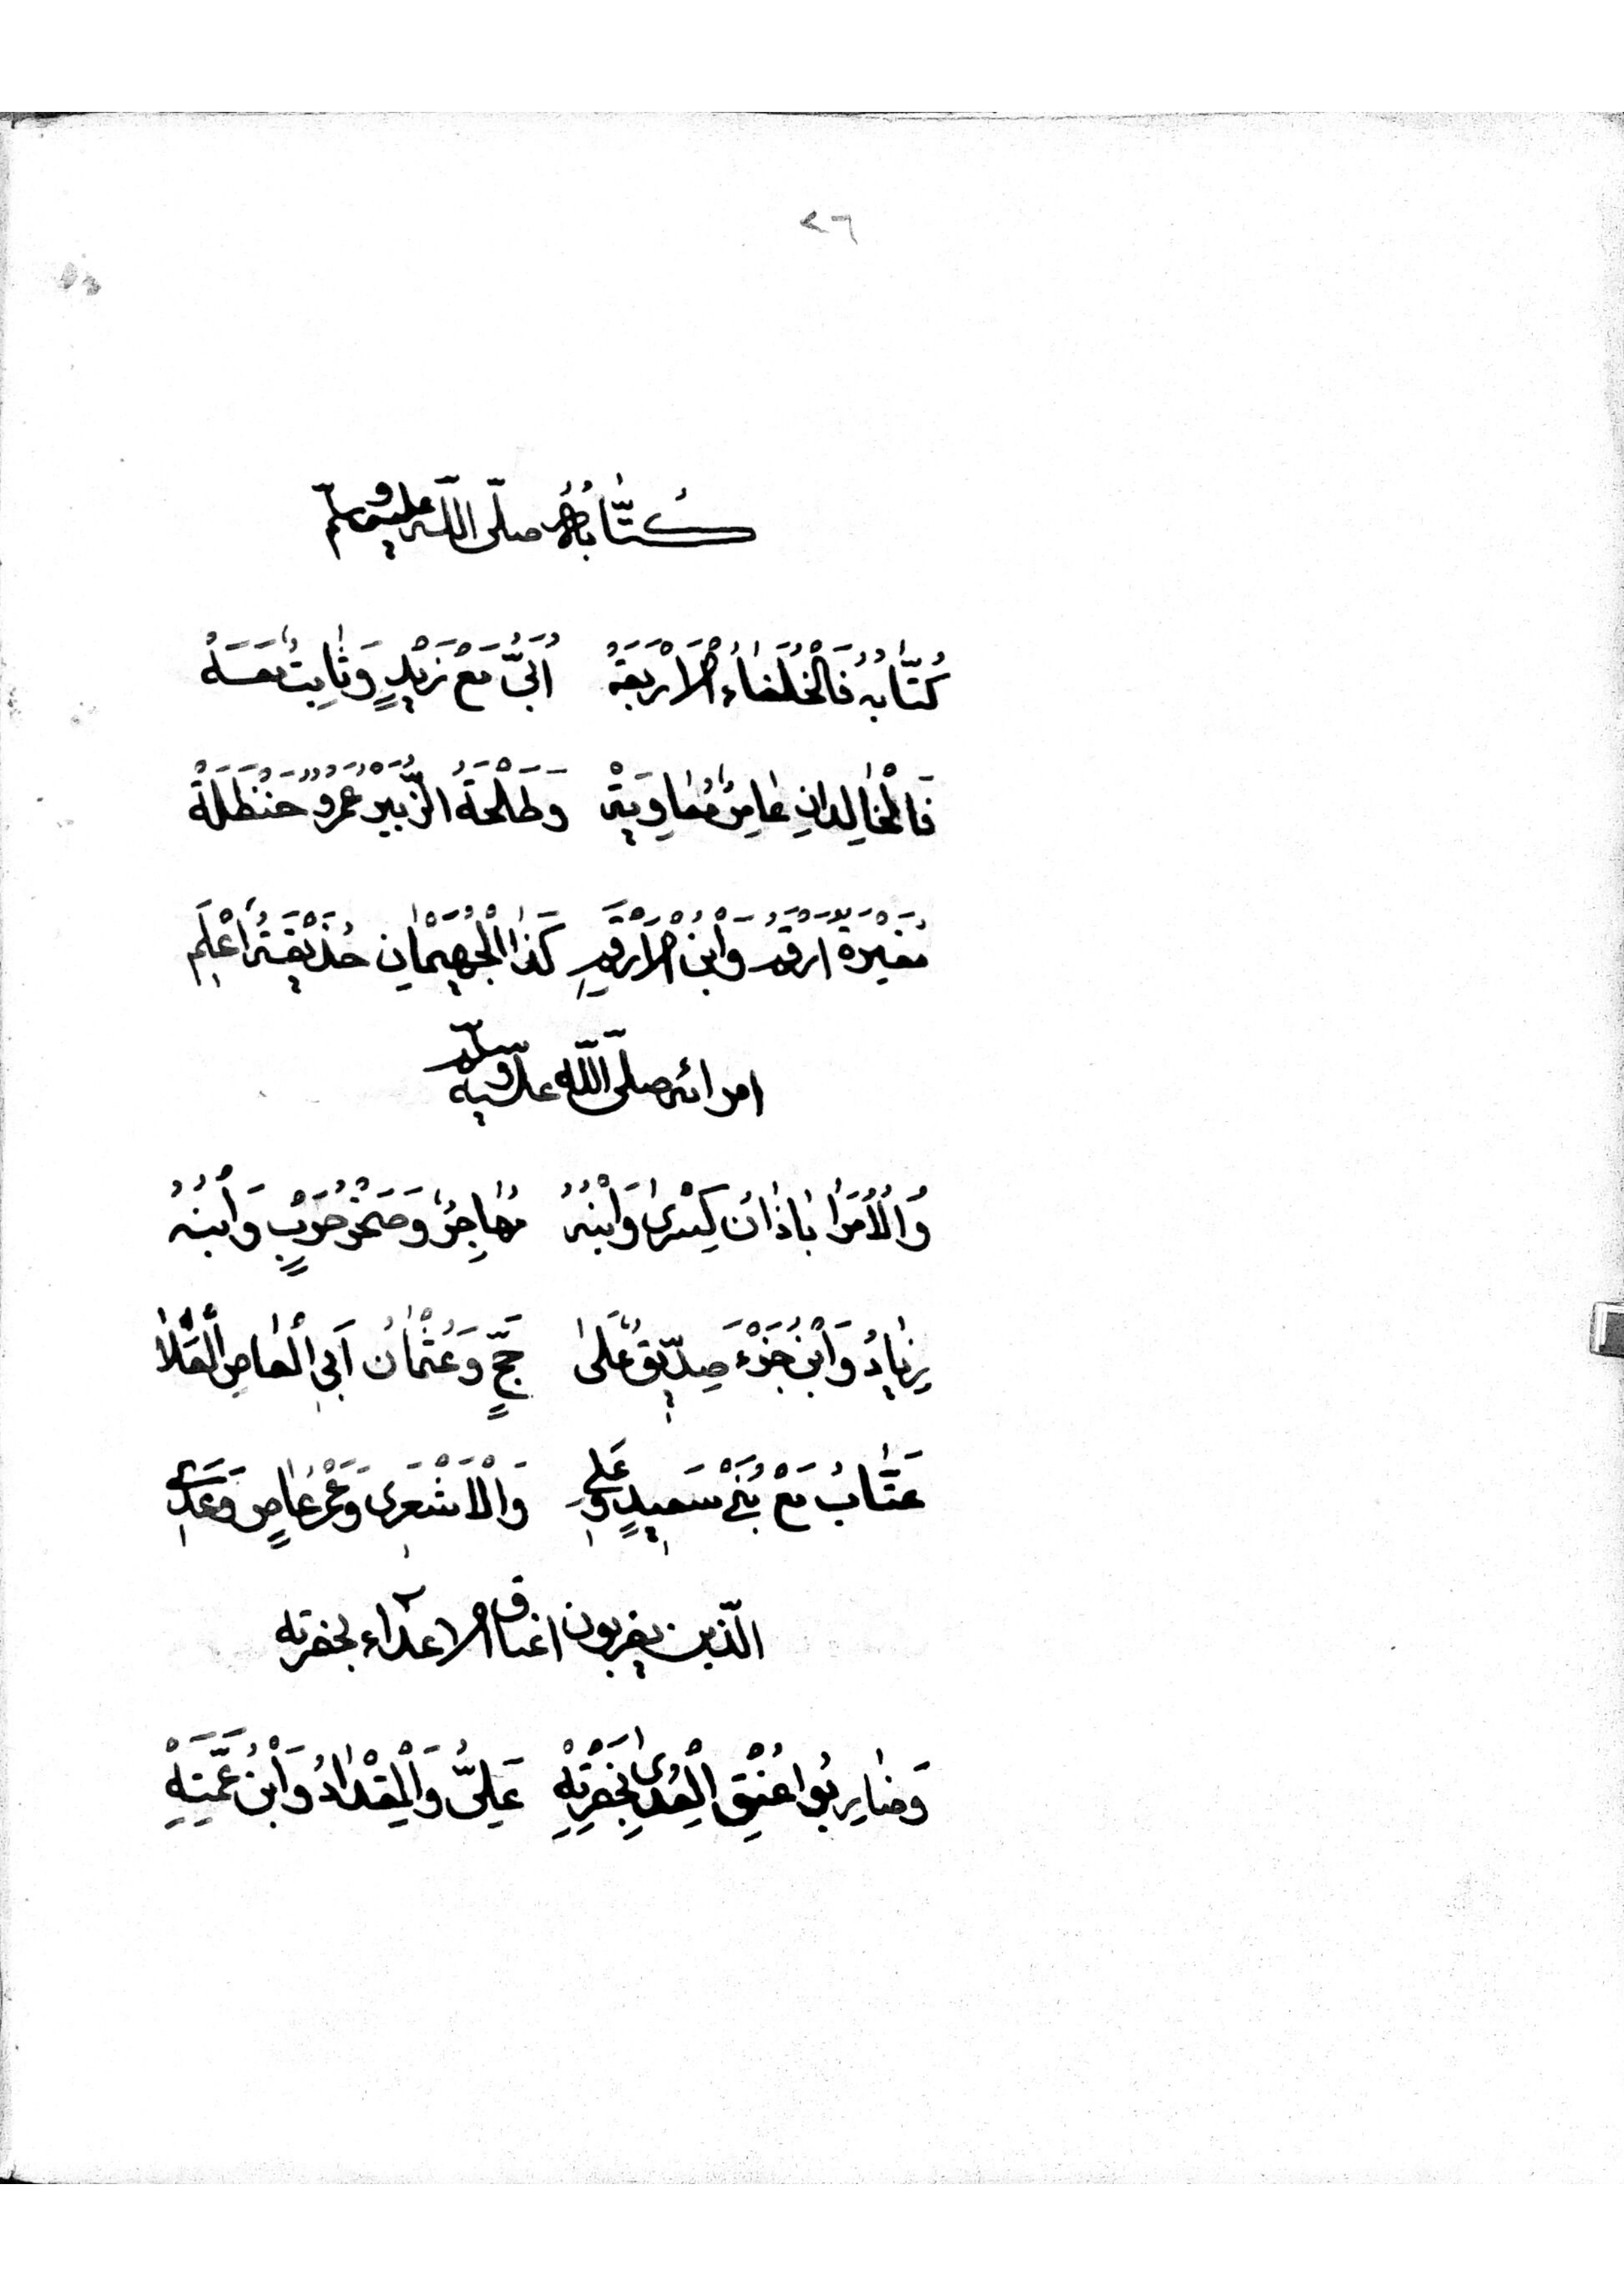 ٢٦
كُتَّابُهُ صلّى اللّه عليه وسلّم
كُتَّابُهُ فَالْخُلَفَاءُ الْاَرْبَعَهْ اُبَىُّ مَعْ زَيْدٍ وَثَابِتٌ مَعَهْ
فَالْخَالِدَانِ عَامِرٌ مُعَاوِيَهْ وَطَلْحَةُ الزُّبَيْرُ عَمْرٌو حَنْظَلَةْ
مُغَيْرَةٌ اَرْقَمُ وَابْنُ الْاَرْقَمِ كَذَا الْجُهَيْمَانِ حُذَيْفَةُ اعْلَمِ
امرائه صلّى اللّه عليه وسلّم
وَالْاُمَرَا بَاذَانُ كِسْرٰى وَابْنُهُ مُهَاجِرٌ وَصَخْرُ حَرْبٍ وَابْنُهُ
زِيَادُ وَابْنُ جَزْءَ صِدِّيقٌ عَلٰى حَجٍّ وَعُثْمَانُ اَبِي الْعَاصِ الْعَلَا
عَتَّابُ مَعْ بُنَيْ سَعِيدٍ وَعَلِي وَالْاَشْعَرِى وَعَمْرُ عَاصٍ وَعَدِي
الّذين يضربون اعناق الاعدآء بحضرته
وَضَارِبُوا عُنْقِ الْعِدٰى بِحَضْرَتِهْ عَلِىُّ وَالْمِقْدَادُ وَابْنُ عَمَّتِهْ